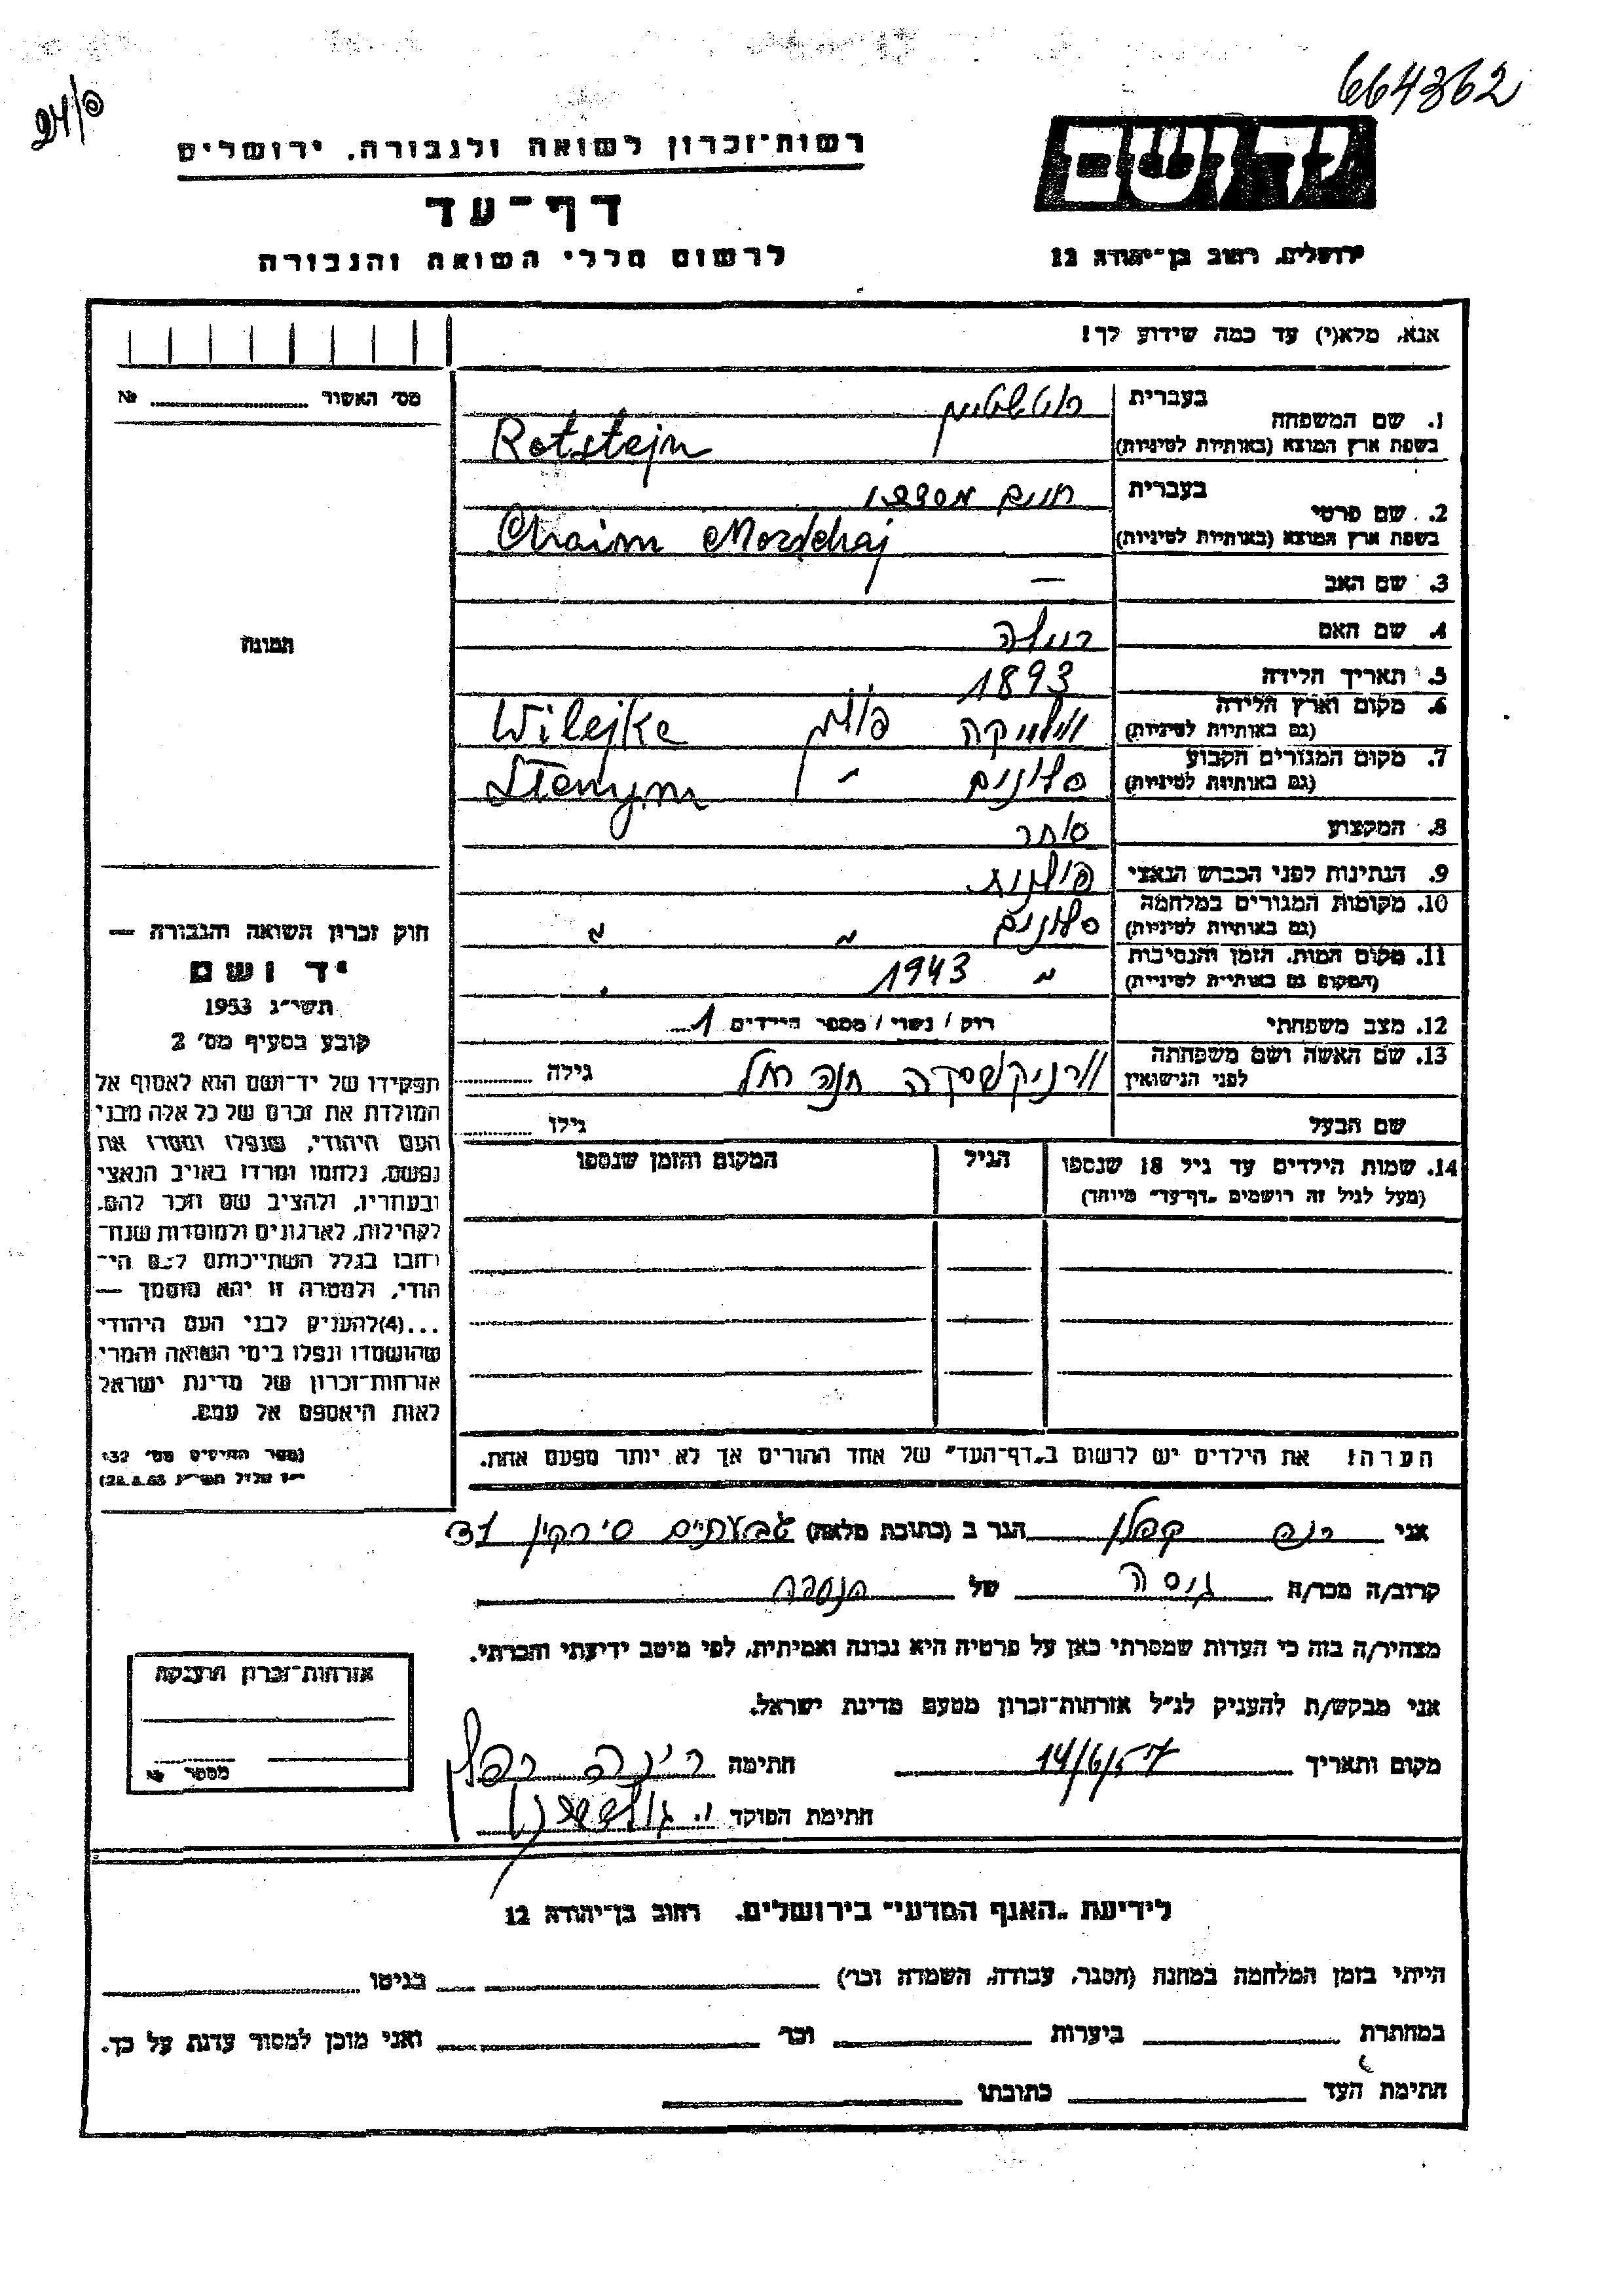 664362
24/פ
יד ושם
ירושלים, רחוב בן־יהודה 12
רשות־זכרון לשואה ולגבורה, ירושלים
דף־עד
לרשום חללי השואה והגבורה
אנא, מלא(י) עד כמה שידוע לך!
מס׳ האשור № 
1. שם המשפחה בעברית רוטשטיין
בשפת ארץ המוצא (באותיות לטיניות) Rotstejn
2. שם פרטי בעברית חיים מרדכי
בשפת ארץ המוצא (באותיות לטיניות) Chaim Mordchaj
3. שם האב —
4. שם האם
5. תאריך הלידה 1893
6. מקום וארץ הלידה (גם באותיות לטיניות) ווילייקה פולין Wilejka
7. מקום המגורים הקבוע (גם באותיות לטיניות) סלונים " Slonym
8. המקצוע סוחר
9. הנתינות לפני הכבוש הנאצי פולנית
10. מקומות המגורים במלחמה (גם באותיות לטיניות) סלונים " "
11. מקום המות, הזמן והנסיבות (המקום גם באותיות לטיניות) " 1943
12. מצב משפחתי רוק / נשוי / מספר הילדים 1
13. שם האשה ושם משפחתה לפני הנישואין חנה רחל גילה
שם הבעל גילו
14. שמות הילדים עד גיל 18 שנספו הגיל המקום והזמן שנספו
(מעל לגיל זה רושמים „דף־עד״ מיוחד)
הערה: את הילדים יש לרשום ב„דף־העד״ של אחד ההורים אך לא יותר מפעם אחת.
תמונה
חוק זכרון השואה והגבורה —
יד ושם
תשי״ג 1953
קובע בסעיף מס׳ 2
תפקידו של יד־ושם הוא לאסוף אל
המולדת את זכרם של כל אלה מבני
העם היהודי, שנפלו ומסרו את
נפשם, נלחמו ומרדו באויב הנאצי
ובעוזריו, ולהציב שם וזכר להם,
לקהילות, לארגונים ולמוסדות שנח־
רבו בגלל השתייכותם לעם הי־
הודי, ולמטרה זו יהא מוסמך —
...(4)להעניק לבני העם היהודי
שהושמדו ונפלו בימי השואה והמרי
אזרחות־זכרון של מדינת ישראל
לאות היאספם אל עמם.
(ספר החוקים מס׳ 132
28.8.53)
אני קפלן הגר ב (כתובת מלאה) גבעתיים סירקין 31
קרוב/ה מכר/ה גיסה של הנספה
מצהיר/ה בזה כי העדות שמסרתי כאן על פרטיה היא נכונה ואמיתית, לפי מיטב ידיעתי והכרתי.
אני מבקש/ת להעניק לנ״ל אזרחות־זכרון מטעם מדינת ישראל.
מקום ותאריך 14/6/57 חתימה
חתימת הפוקד
אזרחות־זכרון הוענקה
מספר №
לידיעת „האגף המדעי״ בירושלים, רחוב בן־יהודה 12
הייתי בזמן המלחמה במחנה (הסגר, עבודה, השמדה וכו׳) בגיטו
במחתרת ביערות וכו׳ ואני מוכן למסור עדות על כך.
חתימת העד כתובתו